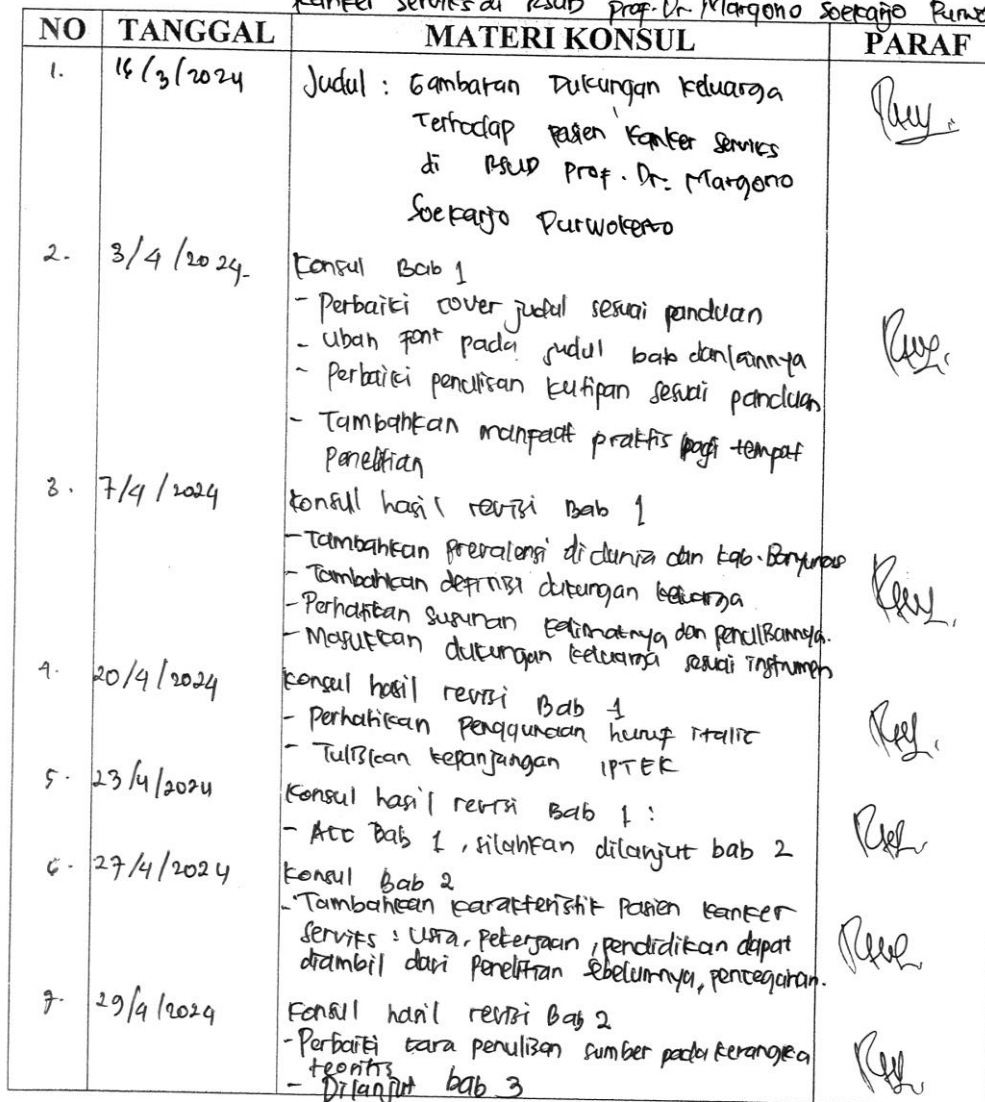 Kanker serviks di RSUD Prof. Dr. Margono Soekarjo
NO TANGGAL MATERI KONSUL PARAF
1. 16/3/2024 Judul : Gambaran Dukungan Keluarga
Terhadap pasien Kanker Serviks
di RSUD Prof. Dr. Margono
Soekarjo Purwokerto
2. 3/4/2024 Konsul Bab 1
- Perbaiki cover judul sesuai panduan
- Ubah font pada judul bab dan lainnya
- Perbaiki penulisan kutipan sesuai panduan
- Tambahkan manfaat praktis bagi tempat
Penelitian
3. 7/4/2024 Konsul hasil revisi Bab 1
- Tambahkan prevalensi di dunia dan kab. Banyumas
- Tambahkan definisi dukungan keluarga
- Perhatikan susunan kalimatnya dan penulisannya.
- Masukkan dukungan keluarga sesuai instrumen
4. 20/4/2024 Konsul hasil revisi Bab 1
- Perhatikan penggunaan huruf italic
- Tuliskan kepanjangan IPTEK
5. 23/4/2024 Konsul hasil revisi Bab 1 :
- Acc Bab 1, silahkan dilanjut bab 2
6. 27/4/2024 Konsul Bab 2
- Tambahkan karakteristik Pasien kanker
Serviks : Usia, Pekerjaan, pendidikan dapat
diambil dari Penelitian sebelumnya, pencegahan.
7. 29/4/2024 Konsul hasil revisi Bab 2
- Perbaiki cara penulisan sumber pada kerangka
teoritis
- Dilanjut bab 3